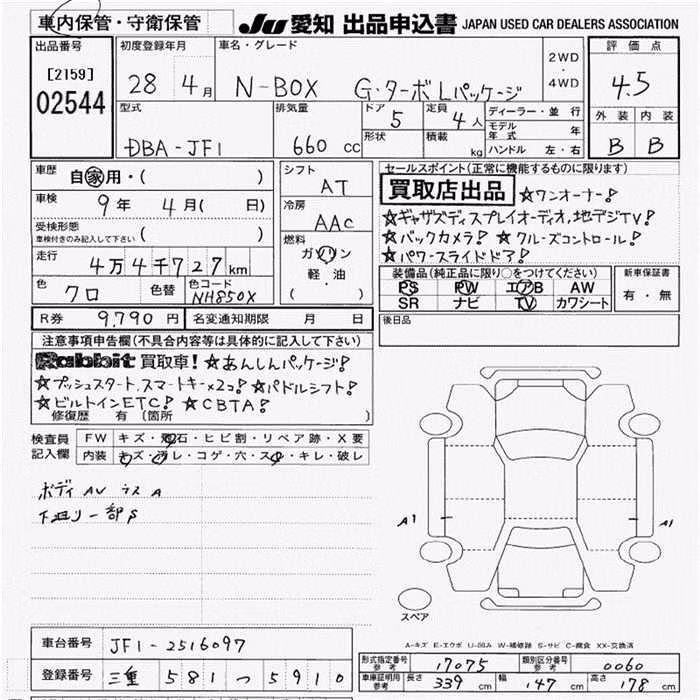 車内保管・守衛保管
JU 愛知 出品申込書 JAPAN USED CAR DEALERS ASSOCIATION
出品番号 [2159] 02544
初度登録年月 28年 4月
車名・グレード N-BOX G・ターボLパッケージ
2WD・4WD
評価点 4.5
外装 B 内装 B
型式 DBA-JF1
排気量 660 cc
ドア 5
形状
定員 4人
積載 kg
ディーラー・並行
モデル年式 年
ハンドル 左・右
車歴 自家用・( )
車検 9年 4月( 日)
受検形態 車検付きのみ記入して下さい ( )
走行 4万4千727km
色 クロ 色替 色コード NH850X
シフト AT
冷房 AAC
燃料 ガソリン 軽油 ( )
セールスポイント(正常に機能するものに限ります)
買取店出品 ☆ワンオーナー!
☆ギャザズディスプレイオーディオ,地デジTV!
☆バックカメラ! ☆クルーズコントロール!
☆パワースライドドア!
装備品(純正品に限り○をつけてください)
PS PW エアB AW
SR ナビ TV カワシート
新車保証書 有・無
R券 9,790円 名変通知期限 月 日
後日品
注意事項申告欄(不具合内容等は具体的に記入して下さい)
Rabbit 買取車! ☆あんしんパッケージ!
☆プッシュスタート,スマートキー×2コ! ☆パドルシフト!
☆ビルトインETC! ☆CBTA!
修復歴 有 〔箇所 〕
検査員記入欄
FW キズ・飛石・ヒビ割・リペア跡・X要
内装 キズ・汚レ・コゲ・穴・スレ・キレ・破レ
ボディ AU ラス A
下廻り一部S
A1 A1
スペア
A-キズ E-エクボ U-凹み W-補修跡 S-サビ C-腐食 XX-交換済
車台番号 JF1-2516097
登録番号 三重 581 つ 5910
形式指定番号 参考 17075 類別区分番号 参考 0060
車庫証明用 参考 長さ 339 cm 幅 147 cm 高さ 178 cm